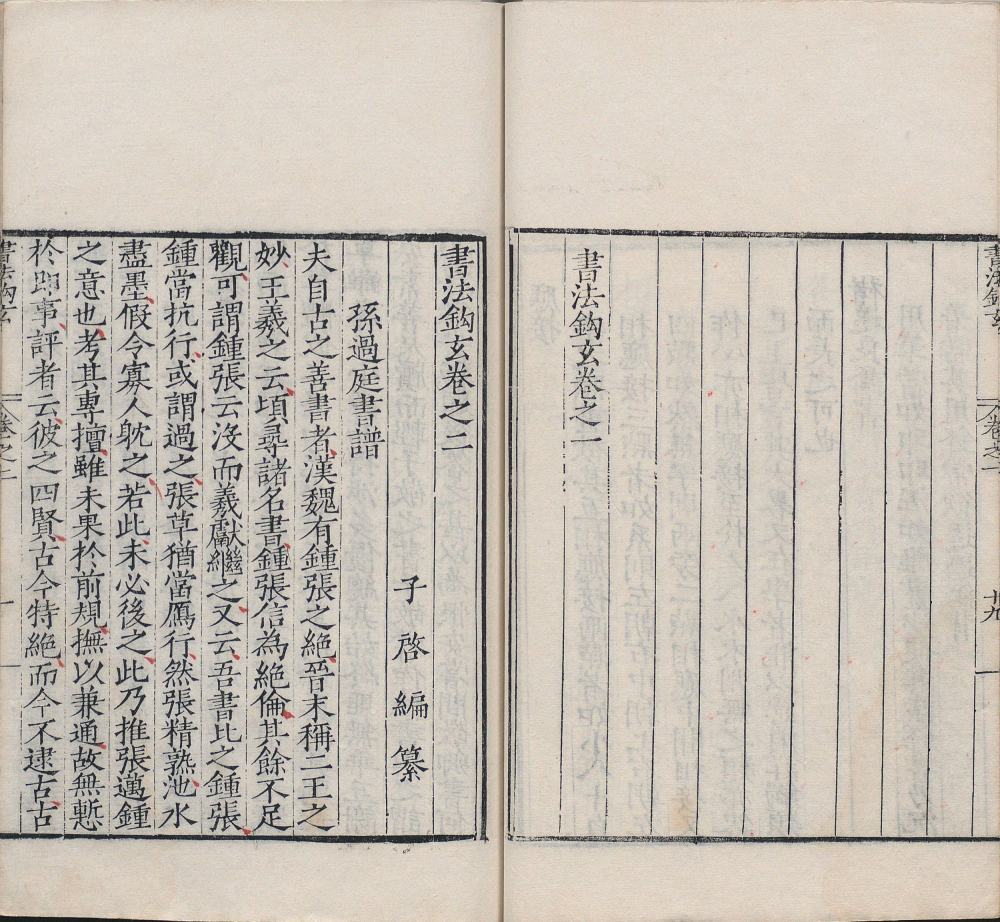 書法鈎玄 卷之一 廿九
書法鈎玄卷之一
書法鈎玄卷之二
子啓編纂
孫過庭書譜
夫自古之善書者漢魏有鍾張之絶晉末稱二王之
妙王羲之云頃尋諸名書鍾張信為絶倫其餘不足
觀可謂鍾張云沒而羲獻繼之又云吾書比之鍾張
鍾當抗行或謂過之張草猶當鴈行然張精熟池水
盡墨假令寡人躭之若此未必後之此乃推張邁鍾
之意也考其專擅雖未果扵前規撫以兼通故無慙
扵即事評者云彼之四賢古今特絶而今不逮古古
書法鈎玄 卷之二 一